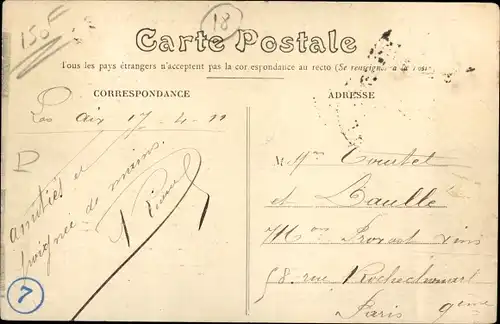 150F
18
Carte Postale
Tous les pays étrangers n'acceptent pas la correspondance au recto (Se renseigner à la Poste)
CORRESPONDANCE
ADRESSE
Les Aix 17-4-11
amitiés et
poignée de mains.
Mrs Tourtet
et Laulle
Mon Provost vins
58. rue Rochechouart
Paris 9eme
7